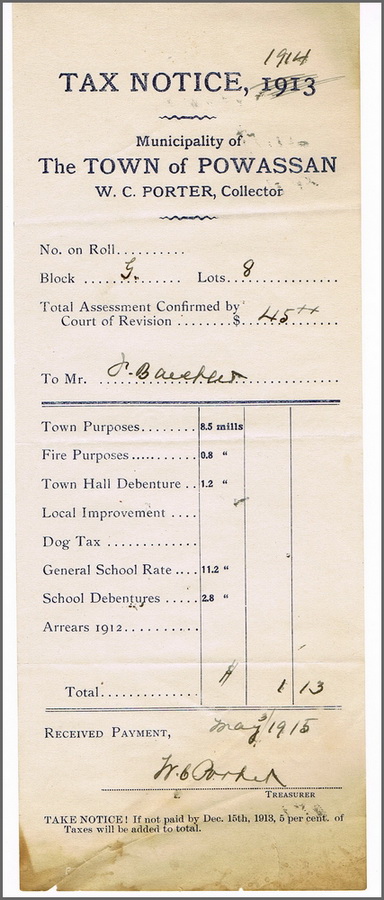 1914
TAX NOTICE, 1913
Municipality of
The TOWN of POWASSAN
W. C. PORTER, Collector
No. on Roll..........
Block ....G........ Lots..8............
Total Assessment Confirmed by
Court of Revision ........$...45..........
To Mr. J. Baechler
Town Purposes........ 8.5 mills
Fire Purposes .......... 0.8 "
Town Hall Debenture .. 1.2 "
Local Improvement ....
Dog Tax .............
General School Rate .... 11.2 "
School Debentures ..... 2.8 "
Arrears 1912..........
Total............. 1 13
RECEIVED PAYMENT, May 1915
W. C. Porter
TREASURER
TAKE NOTICE! If not paid by Dec. 15th, 1913, 5 per cent. of
Taxes will be added to total.